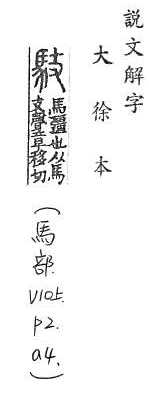 說文解字
大徐本
馶 馬彊也从馬
支聲章移切
(馬部. V10上. P2. a4.)